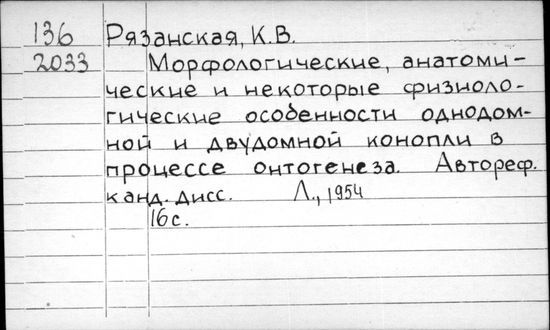 136 Рязанская, К.В.
2033 Морфологические, анатоми-
ческие и некоторые физиоло-
гические особенности однодом-
ной и двудомной конопли в
процессе онтогенеза. Автореф.
канд. дисс. Л., 1954
16с.